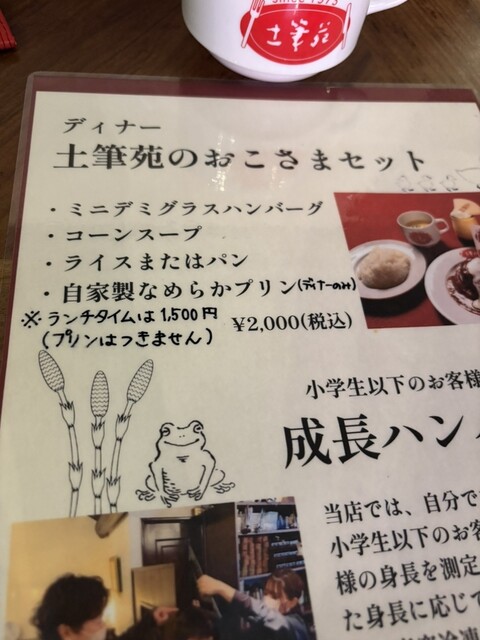 SINCE 1975
土筆苑
ディナー
土筆苑のおこさまセット
・ミニデミグラスハンバーグ
・コーンスープ
・ライスまたはパン
・自家製なめらかプリン(ディナーのみ)
※ ランチタイムは 1,500円
(プリンはつきません)
¥2,000(税込)
小学生以下のお客様
成長ハン
当店では、自分で
小学生以下のお客
様の身長を測定
た身長に応じて